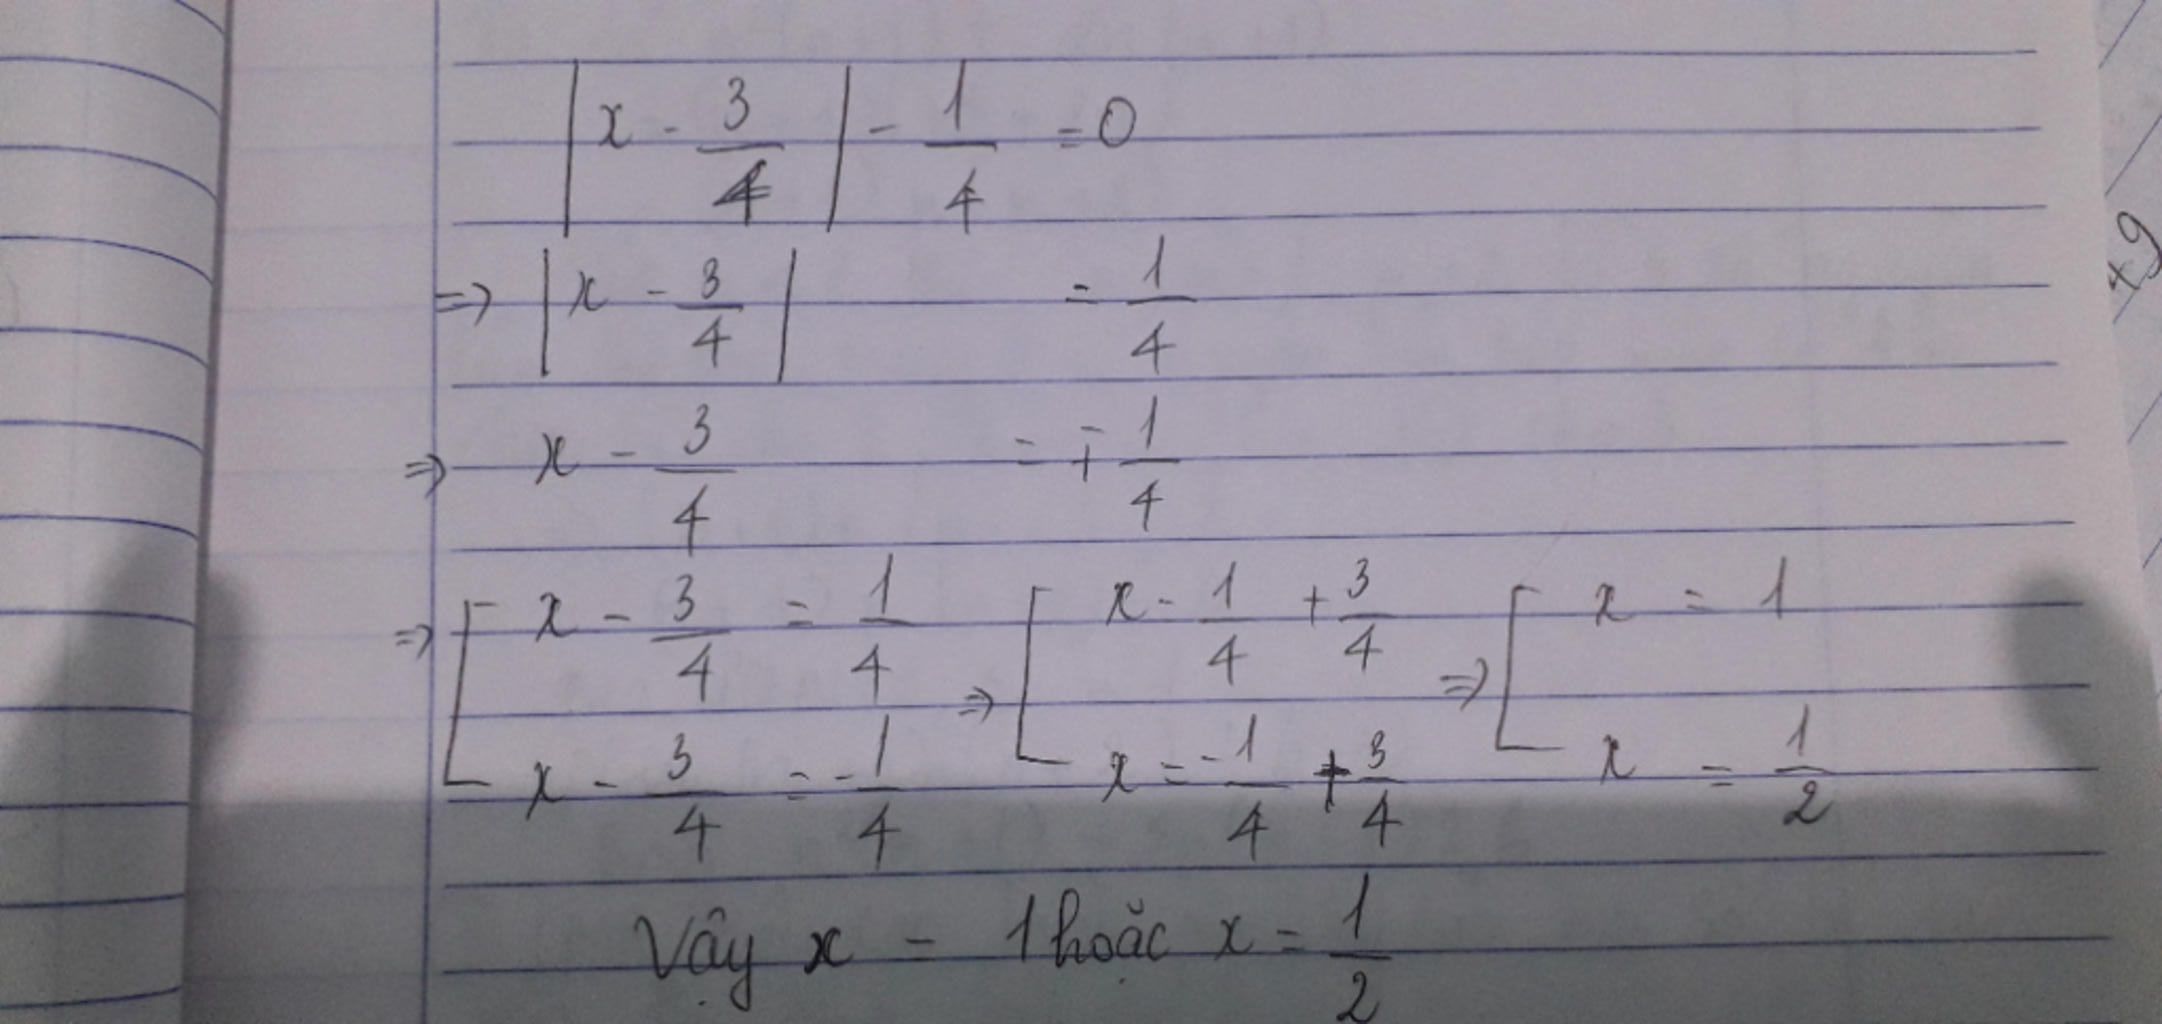 |x - 3/4| - 1/4 = 0
=> |x - 3/4| = 1/4
=> x - 3/4 = ∓ 1/4
=> [ x - 3/4 = 1/4 => [ x - 1/4 + 3/4 => [ x = 1
x - 3/4 = -1/4 x = -1/4 + 3/4 x = 1/2
Vậy x = 1 hoặc x = 1/2